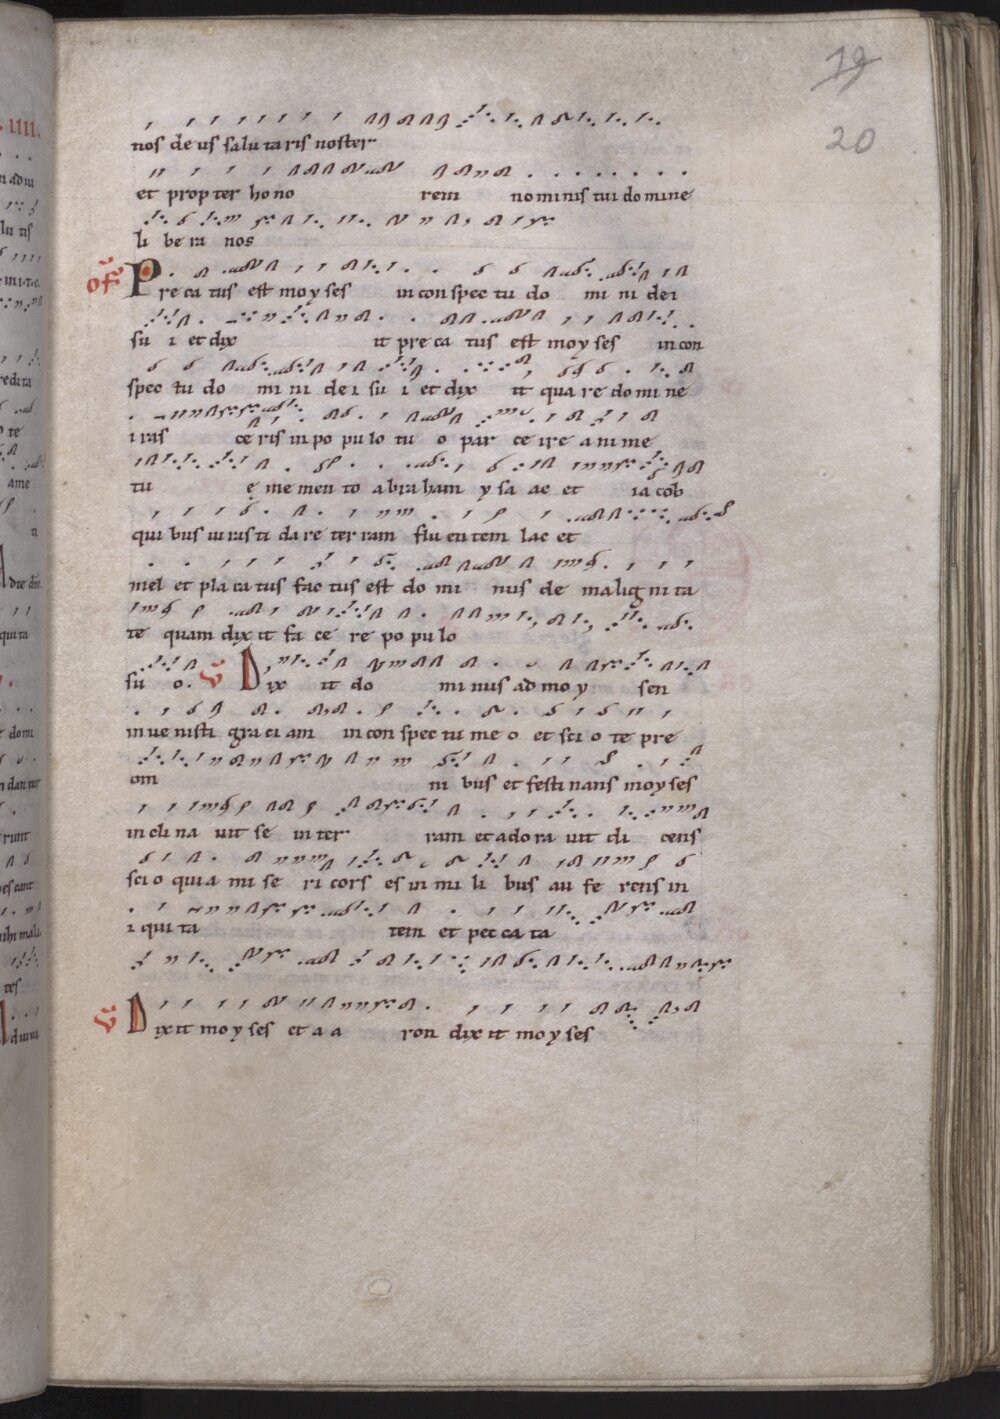 19
20
nos de us salu ta ris noster
et prop ter ho no rem no mi nis tui do mine
li be ra nos
off Pre ca tus est mo y ses in con spec tu do mi ni de i
su i et dix it pre ca tus est mo y ses in con
spec tu do mi ni de i su i et dix it qua re do mi ne
i ras ce ris in po pu lo tu o par ce ire a ni me
tu ę me men to a bra ham y sa ac et ia cob
qui bus iu ras ti da re ter ram flu en tem lac et
mel et pla ca tus fac tus est do mi nus de malig ni ta
te quam dix it fa ce re po pu lo
su o. V Dix it do mi nus ad mo y sen
in ue nisti gra ci am in con spec tu me o et sci o te pre
om ni bus et festi nans moy ses
in cli na uit se in ter ram et ado ra uit di cens
sci o qui a mi se ri cors es in mi li bus au fe rens in
i qui ta tem et pec ca ta
V Dix it mo y ses et a a ron dix it mo y ses